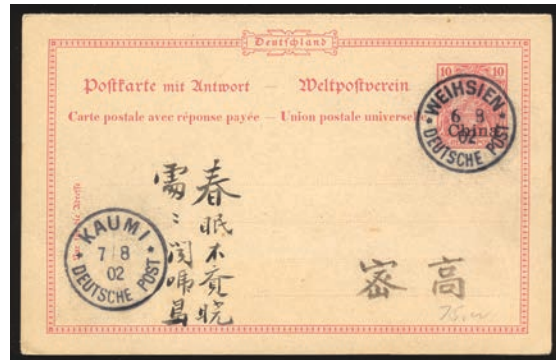 Deutschland
Postkarte mit Antwort — Weltpostverein
Carte postale avec réponse payée — Union postale universelle
10 10
China
WEIHSIEN
6 8
02
DEUTSCHE POST
KAUMI
7 8
02
DEUTSCHE POST
春眠不覓晓
䨓〻闻啼鳥
高密